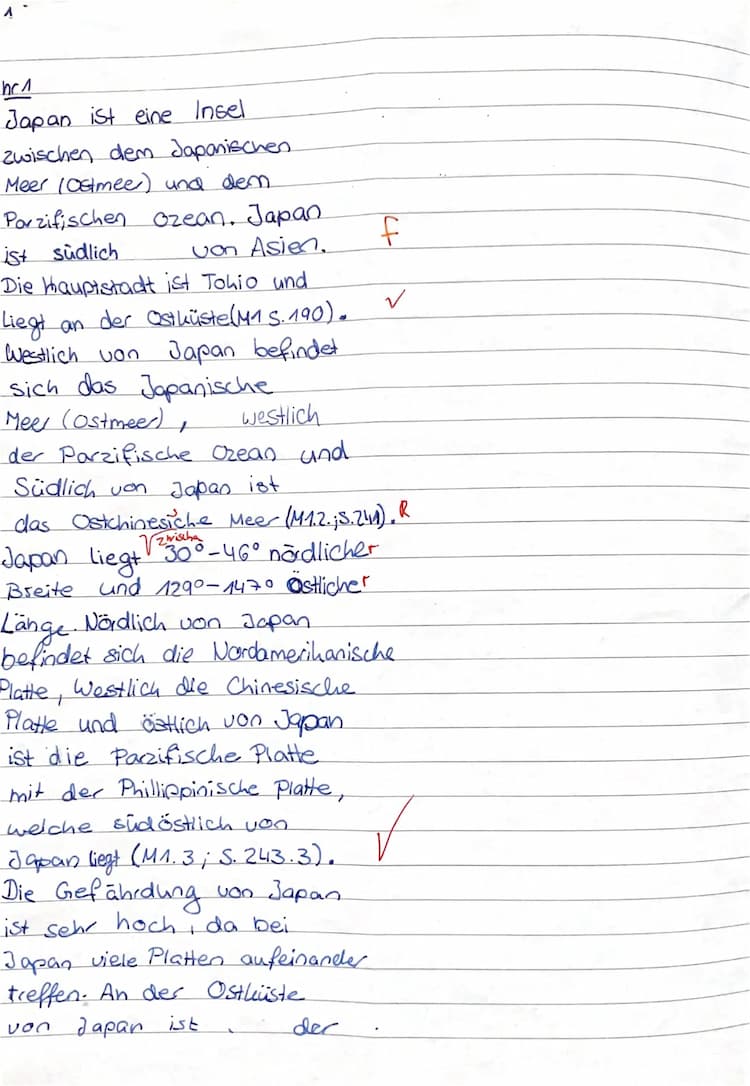 1
nr1
Japan ist eine Insel
zwischen dem Japanischen
Meer (Ostmee) und dem
Parzifischen Ozean. Japan
ist südlich von Asien. f
Die Hauptstadt ist Tokio und
liegt an der Ostküste(M1 S.190). ✓
Westlich von Japan befindet
sich das Japanische
Meer (Ostmeer), westlich
der Parzifische Ozean und
Südlich von Japan ist
das Ostchinesiche Meer (M1.2.;S.241). R
zwische
Japan liegt √ 30°-46° nördlicher
Breite und 129°-147° Östlicher
Länge. Nördlich von Japan
befindet sich die Nordamerikanische
Platte, Westlich die Chinesische
Platte und östlich von Japan
ist die Parzifische Platte
mit der Phillippinische Platte,
welche südöstlich von
Japan liegt (M1.3; S. 243.3). ✓
Die Gefährdung von Japan
ist sehr hoch, da bei
Japan viele Platten aufeinander
treffen. An der Ostküste
von Japan ist der